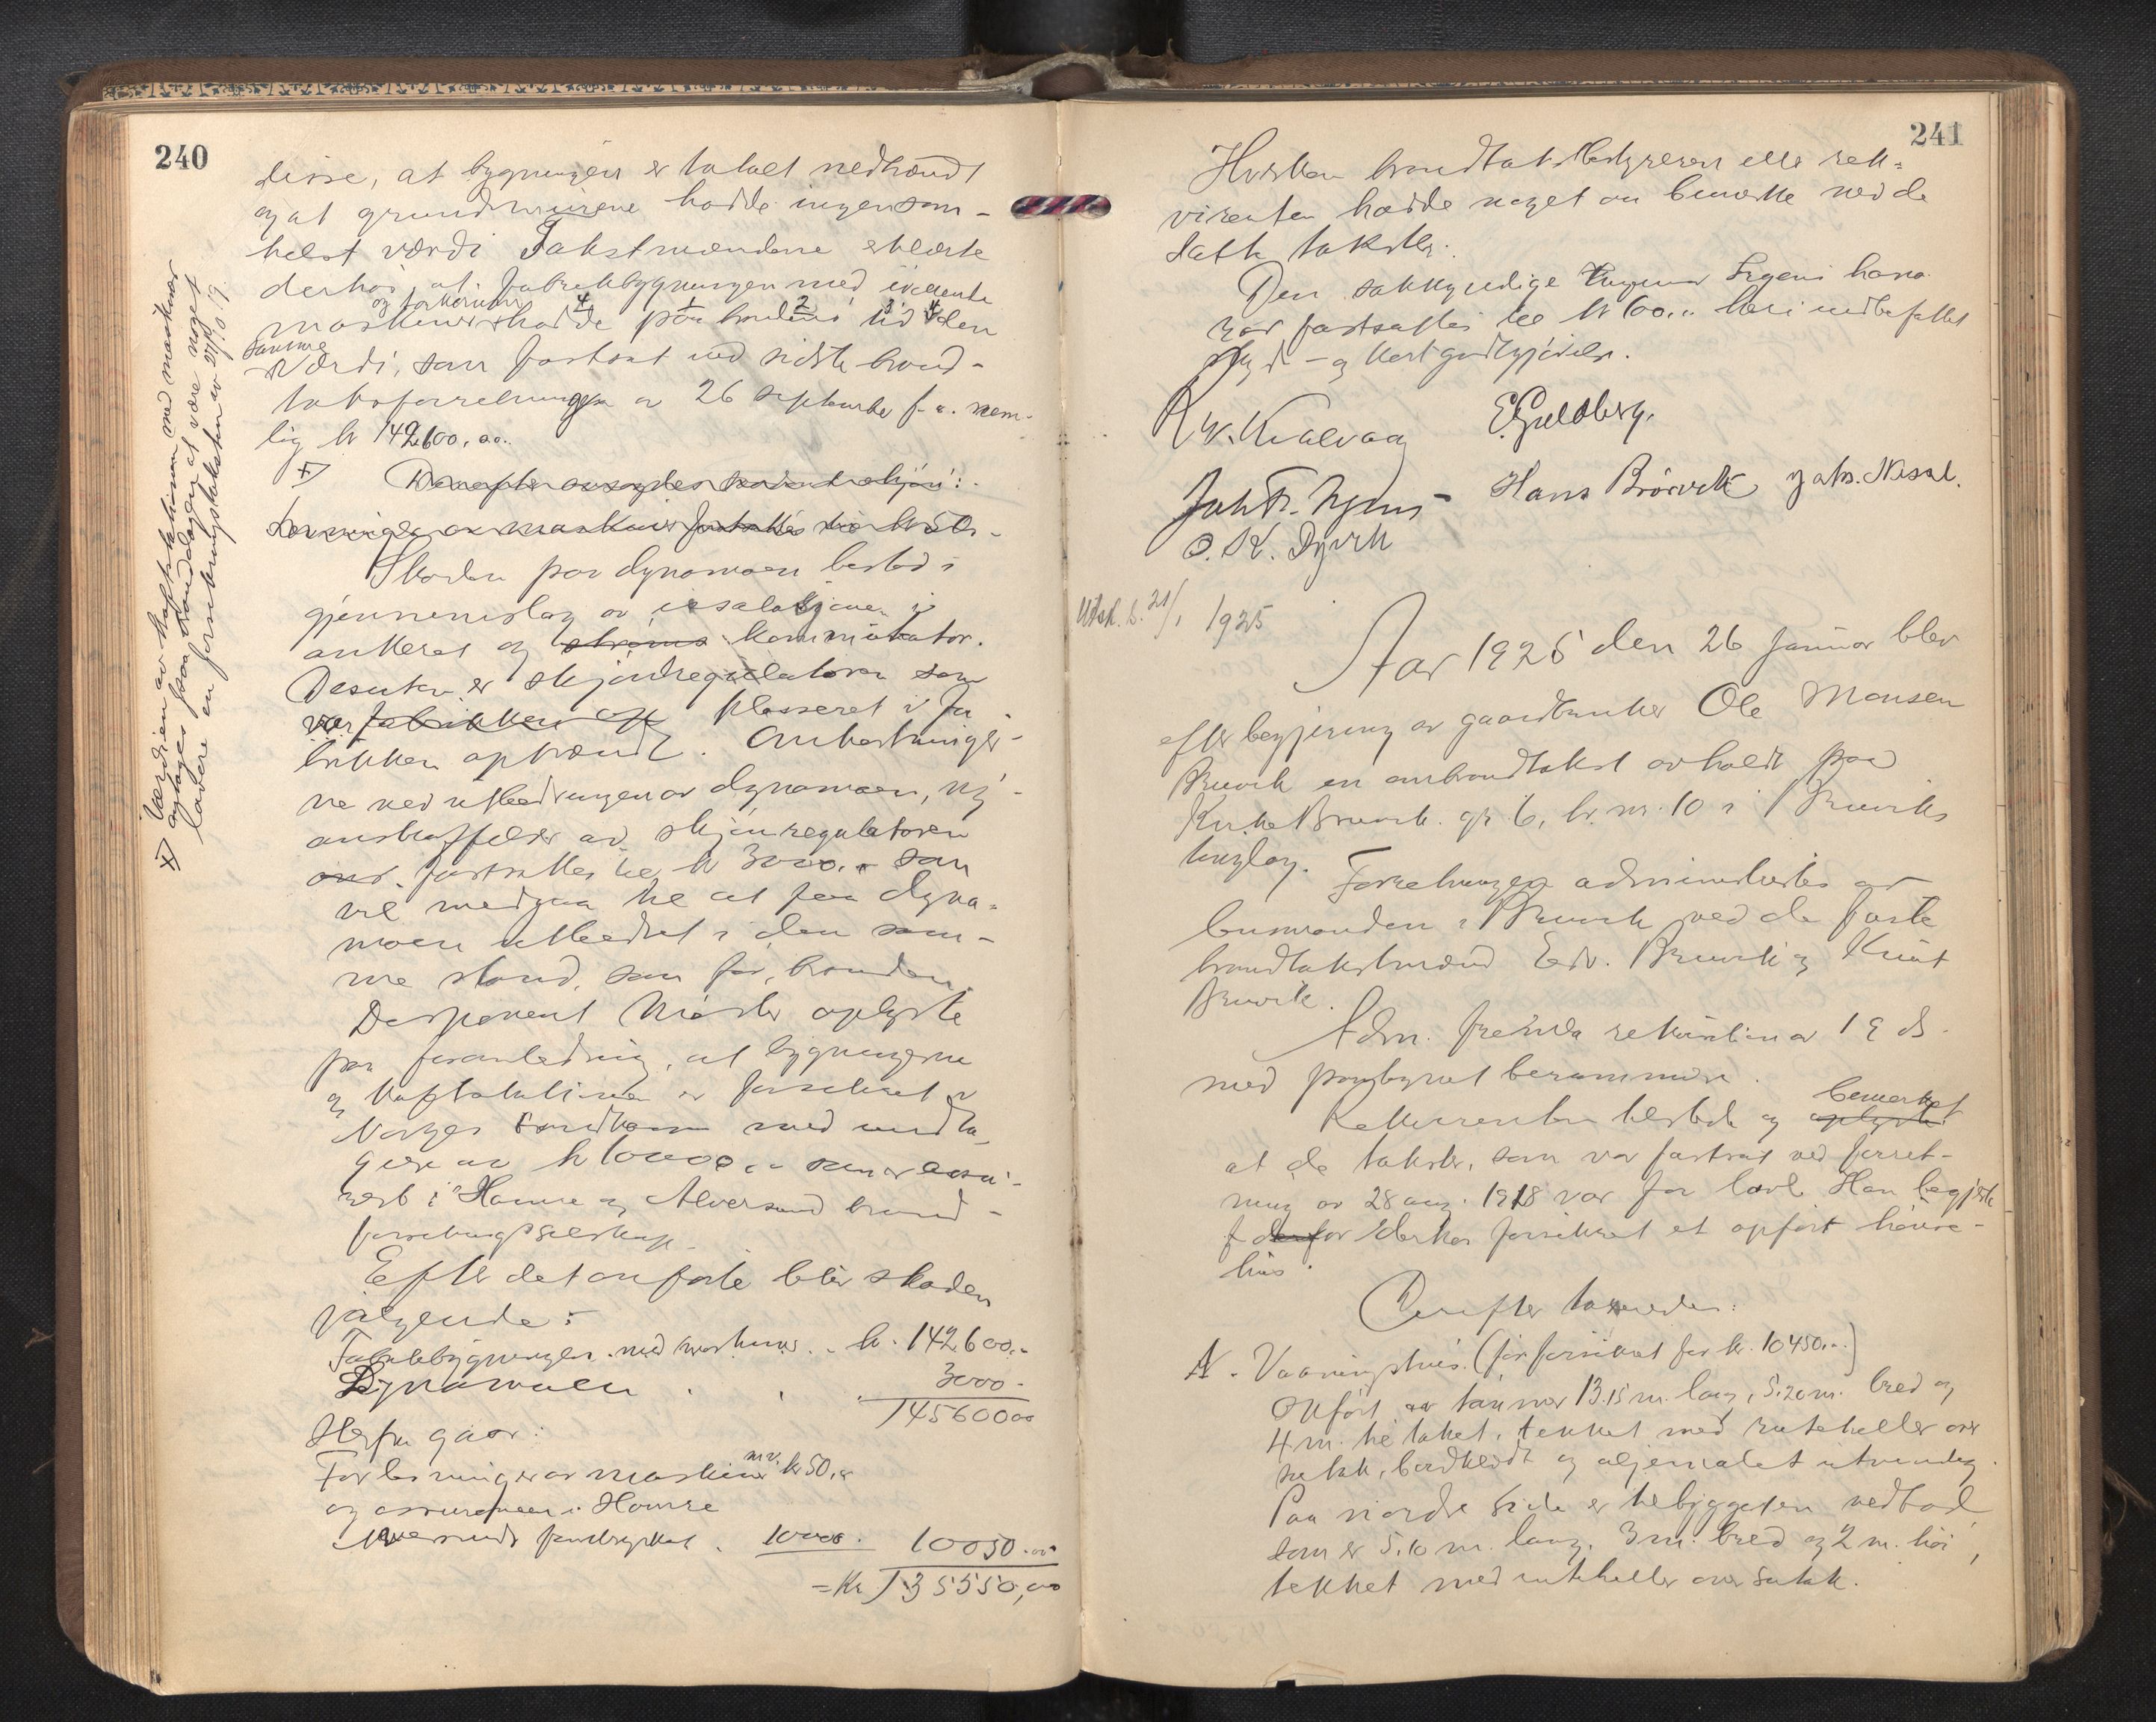 240
disse, at bygningen er totalt nedbrændt
og at grundmurene hadde ingensom-
helst værdi Takstmændene erklærte
derhos, at fabrikbygningen med
maskiner hadde paa brandens tid den
samme
værdi, som fastsat ved sidste brand-
takstforretningen av 26 september f.a. nem-
lig kr 142600,00.
Skaden paa dynamoen bestod i
gjennemslag av isolasjonen i
ankeret og kommutator.
Desuten er skjönregulatoren som
var plasseret i fa-
brikken opbrændt. Omkostninger-
ne ved utbedringen av dynamoen, ny-
anskaffelse av skjönregulatoren
fastsattes til kr 3000,- som
vil medgaa til at faa dyna-
moen utbedret i den sam-
me stand, som för branden.
Disponent oplyste
paa foranledning, at bygningerne
og kraftstationen er forsikret i
Norges Brandkasse med undta-
gelse av kr 10000,- som er assu-
rert i Hamre og Alversund brand-
forsikringsselskap.
Efter det anförte blir skaden
fölgende:
Fabrikbygningen med maskiner .. kr. 142600.-
Dynamoen . . . 3000.-
145600 00
Herfra gaar:
For levninger av maskiner m.v. kr 50,-
og assurancen i Hamre
Alversunds 10000. 10050.00
= Kr 135550,00
x) Værdien av kraftstationen med maskiner
antages paa branddagen at være noget
lavere en forsikringstaksten av 27/9 1919.
241
Hverken brandtakstbestyreren elle rek-
virenten hadde noget at bemerke ved de
satte takster.
Den sakkyndige hono
rar fastsattes til kr 60.- heri indbefattet
skyds- og kostgodtgjörelse.
E. Guldberg.
Hans Brörvik
Utsk. b. 21/1 1925
Aar 1925 den 26 januar blev
efter begjæring av gaardbruker Ole Monsen
Bruvik en ombrandtakst avholdt paa
Kirke Bruvik gr. 6, br. nr. 10 i Bruviks
tinglag.
Forretningen administrertes av
lensmanden i Bruvik ved de faste
brandtakstmænd Edv. Bruvik og Knut
Bruvik.
Adm. fremla rekvisition av 19 ds.
med paategnet berammelse.
Rekvirenten tilstede og bemerket
at de takster, som var fastsat ved forret-
ning av 28 aug. 1918 var for lavt. Han begjærte
derhos forsikret et opfört hönse-
hus.
Derefter takseredes:
A. Vaaningshus. (för forsikret for kr. 10450.-.)
Opfört av tömmer 13.15 m. lang, 5.20 m. bred og
4 m. til taket, tekket med ruteheller over
sutak, bordklædt og oljemalet utvendig.
Paa nordre side er tilbygget en vedbod,
som er 5.10 m. lang, 3 m. bred og 2 m. höi,
tekket med ruteheller over sutak.